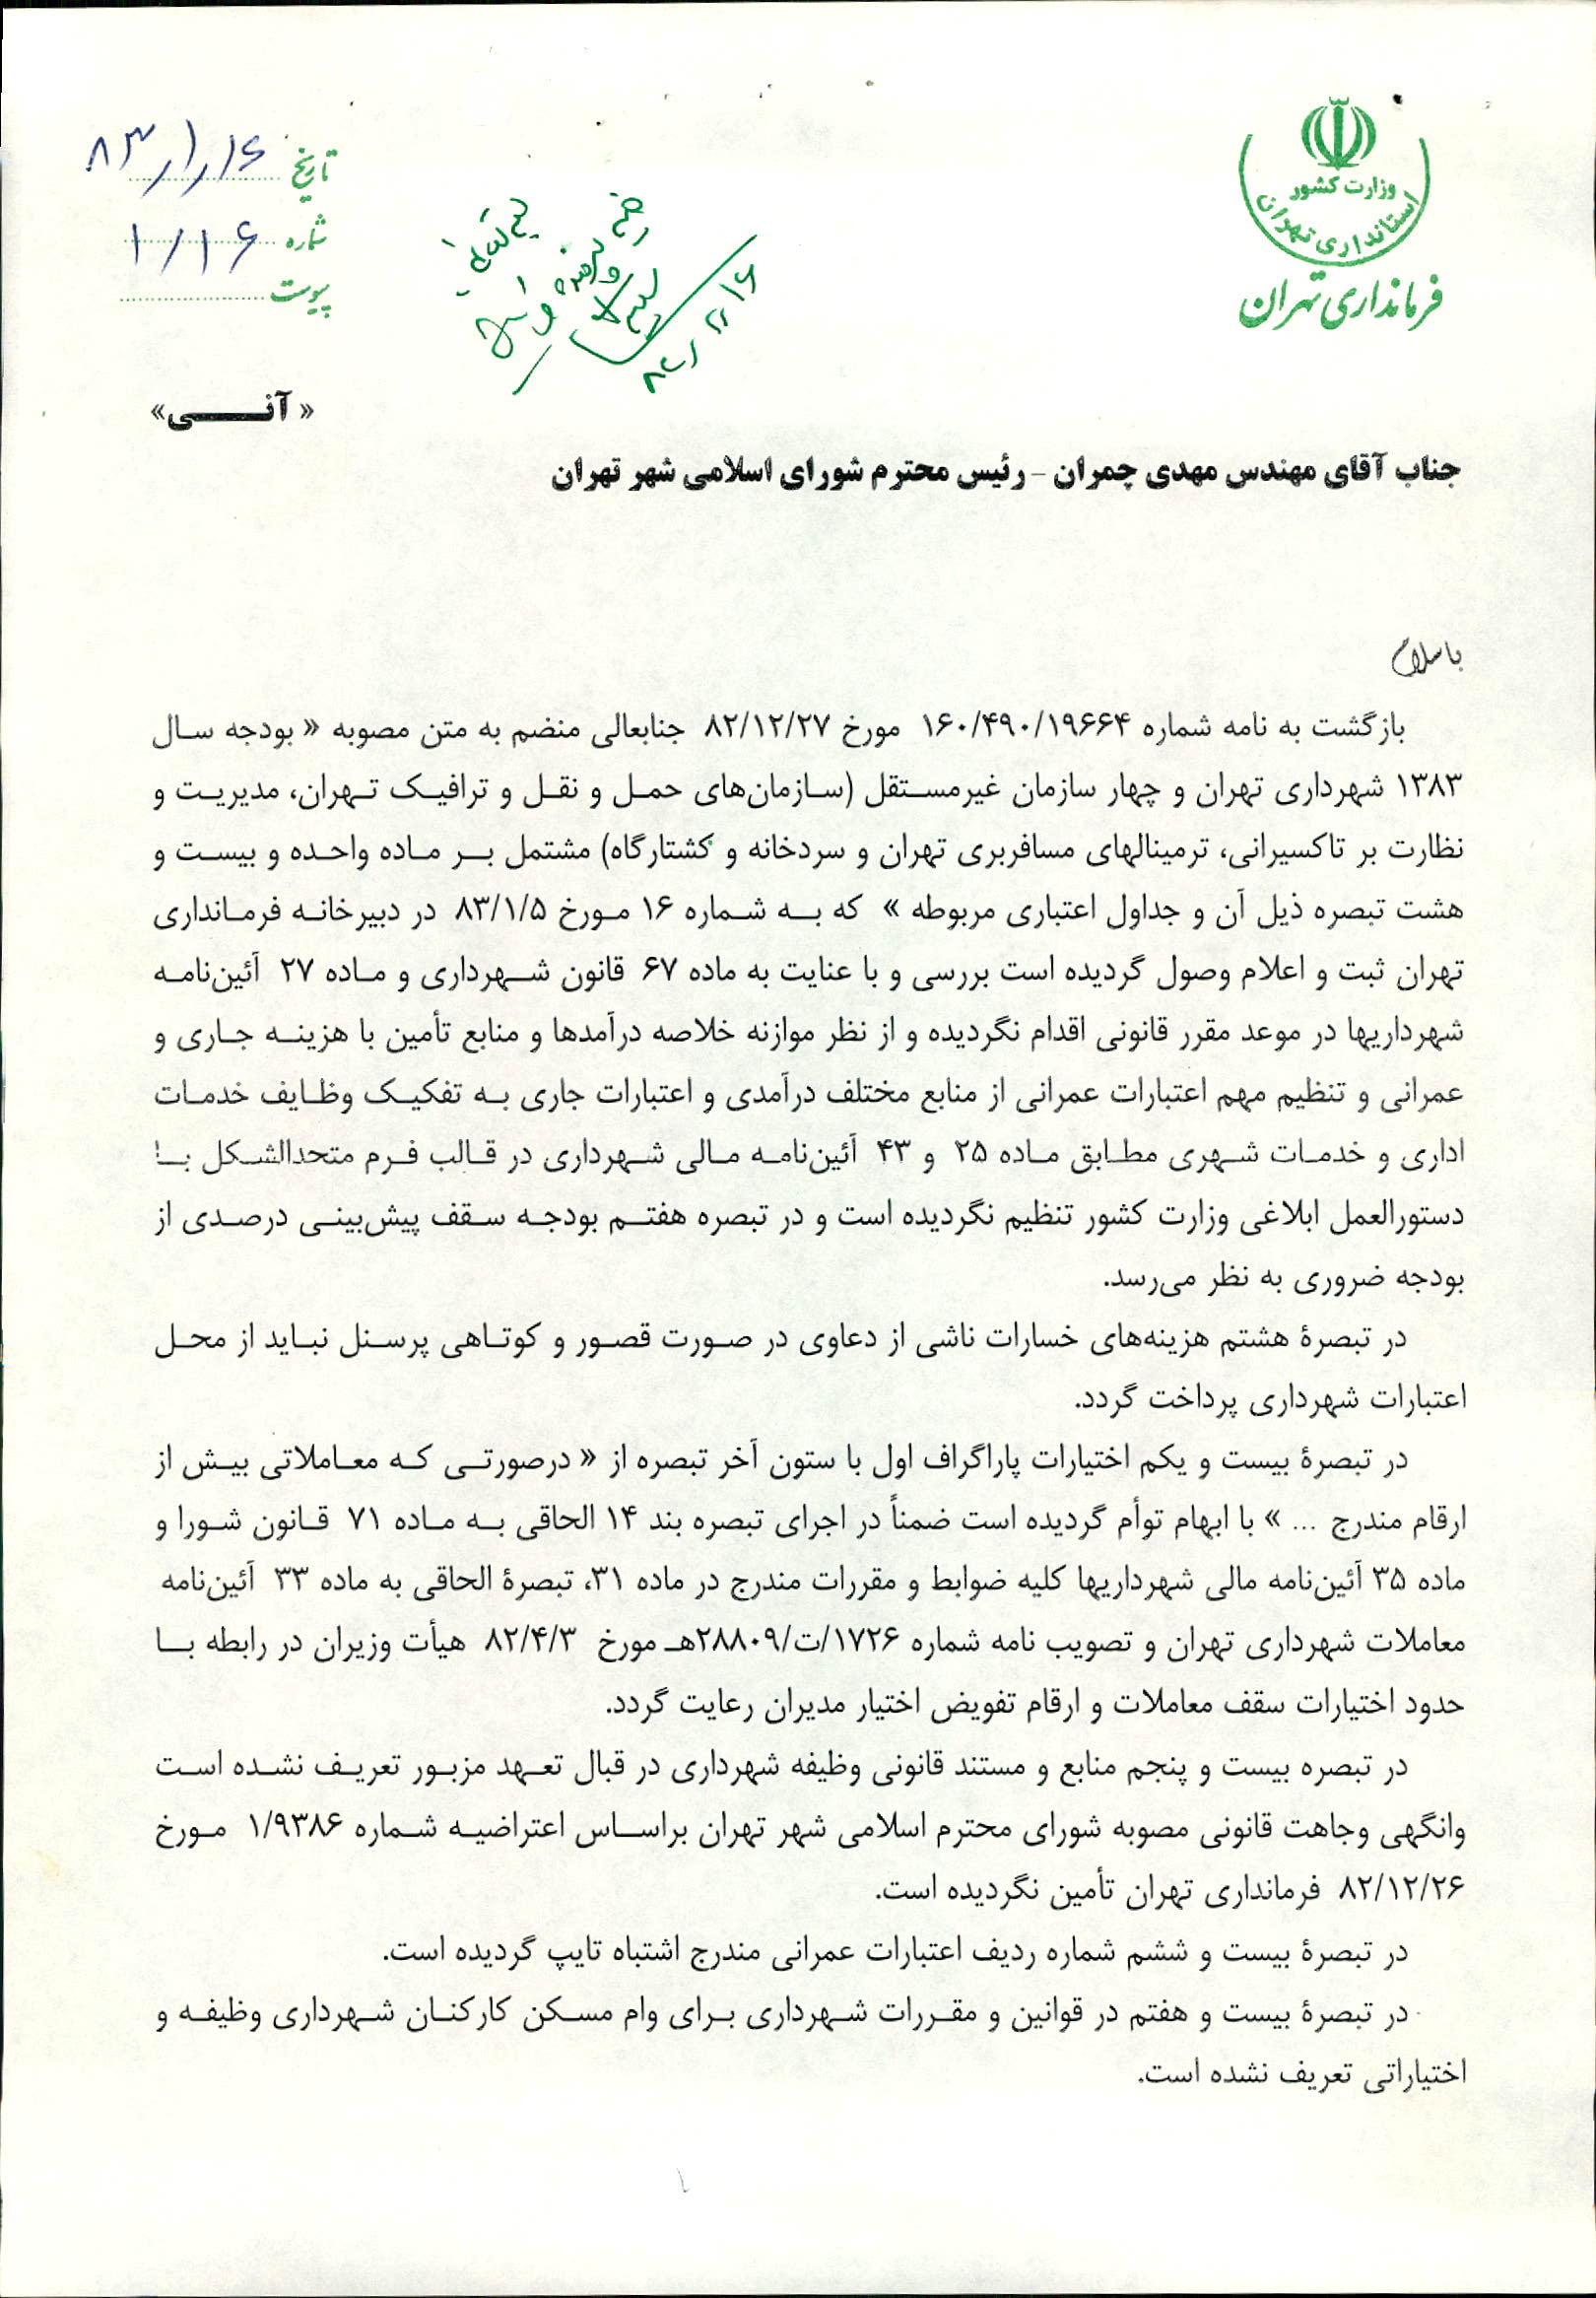 وزارت کشور
استانداری تهران
فرمانداری تهران
تاریخ ۸۳/۱/۱۶
شماره ۱/۱۶
پیوست
« آنـــــی»
جناب آقای مهندس مهدی چمران - رئیس محترم شورای اسلامی شهر تهران
باسلام
بازگشت به نامه شماره ۱۶۰/۴۹۰/۱۹۶۶۴ مورخ ۸۲/۱۲/۲۷ جنابعالی منضم به متن مصوبه « بودجه سال
۱۳۸۳ شهرداری تهران و چهار سازمان غیرمستقل (سازمان‌های حمل و نقل و ترافیک تهران، مدیریت و
نظارت بر تاکسیرانی، ترمینالهای مسافربری تهران و سردخانه و کشتارگاه) مشتمل بر ماده واحده و بیست و
هشت تبصره ذیل آن و جداول اعتباری مربوطه » که به شماره ۱۶ مورخ ۸۳/۱/۵ در دبیرخانه فرمانداری
تهران ثبت و اعلام وصول گردیده است بررسی و با عنایت به ماده ۶۷ قانون شهرداری و ماده ۲۷ آئین‌نامه
شهرداریها در موعد مقرر قانونی اقدام نگردیده و از نظر موازنه خلاصه درآمدها و منابع تأمین با هزینه جاری و
عمرانی و تنظیم مهم اعتبارات عمرانی از منابع مختلف درآمدی و اعتبارات جاری به تفکیک وظایف خدمات
اداری و خدمات شهری مطابق ماده ۲۵ و ۴۳ آئین‌نامه مالی شهرداری در قالب فرم متحدالشکل با
دستورالعمل ابلاغی وزارت کشور تنظیم نگردیده است و در تبصره هفتم بودجه سقف پیش‌بینی درصدی از
بودجه ضروری به نظر می‌رسد.
در تبصرۀ هشتم هزینه‌های خسارات ناشی از دعاوی در صورت قصور و کوتاهی پرسنل نباید از محل
اعتبارات شهرداری پرداخت گردد.
در تبصرۀ بیست و یکم اختیارات پاراگراف اول با ستون آخر تبصره از « درصورتی که معاملاتی بیش از
ارقام مندرج ... » با ابهام توأم گردیده است ضمناً در اجرای تبصره بند ۱۴ الحاقی به ماده ۷۱ قانون شورا و
ماده ۳۵ آئین‌نامه مالی شهرداریها کلیه ضوابط و مقررات مندرج در ماده ۳۱، تبصرۀ الحاقی به ماده ۳۳ آئین‌نامه
معاملات شهرداری تهران و تصویب نامه شماره ۱۷۲۶/ت/۲۸۸۰۹هـ مورخ ۸۲/۴/۳ هیأت وزیران در رابطه با
حدود اختیارات سقف معاملات و ارقام تفویض اختیار مدیران رعایت گردد.
در تبصره بیست و پنجم منابع و مستند قانونی وظیفه شهرداری در قبال تعهد مزبور تعریف نشده است
وانگهی وجاهت قانونی مصوبه شورای محترم اسلامی شهر تهران براساس اعتراضیه شماره ۱/۹۳۸۶ مورخ
۸۲/۱۲/۲۶ فرمانداری تهران تأمین نگردیده است.
در تبصرۀ بیست و ششم شماره ردیف اعتبارات عمرانی مندرج اشتباه تایپ گردیده است.
در تبصرۀ بیست و هفتم در قوانین و مقررات شهرداری برای وام مسکن کارکنان شهرداری وظیفه و
اختیاراتی تعریف نشده است.